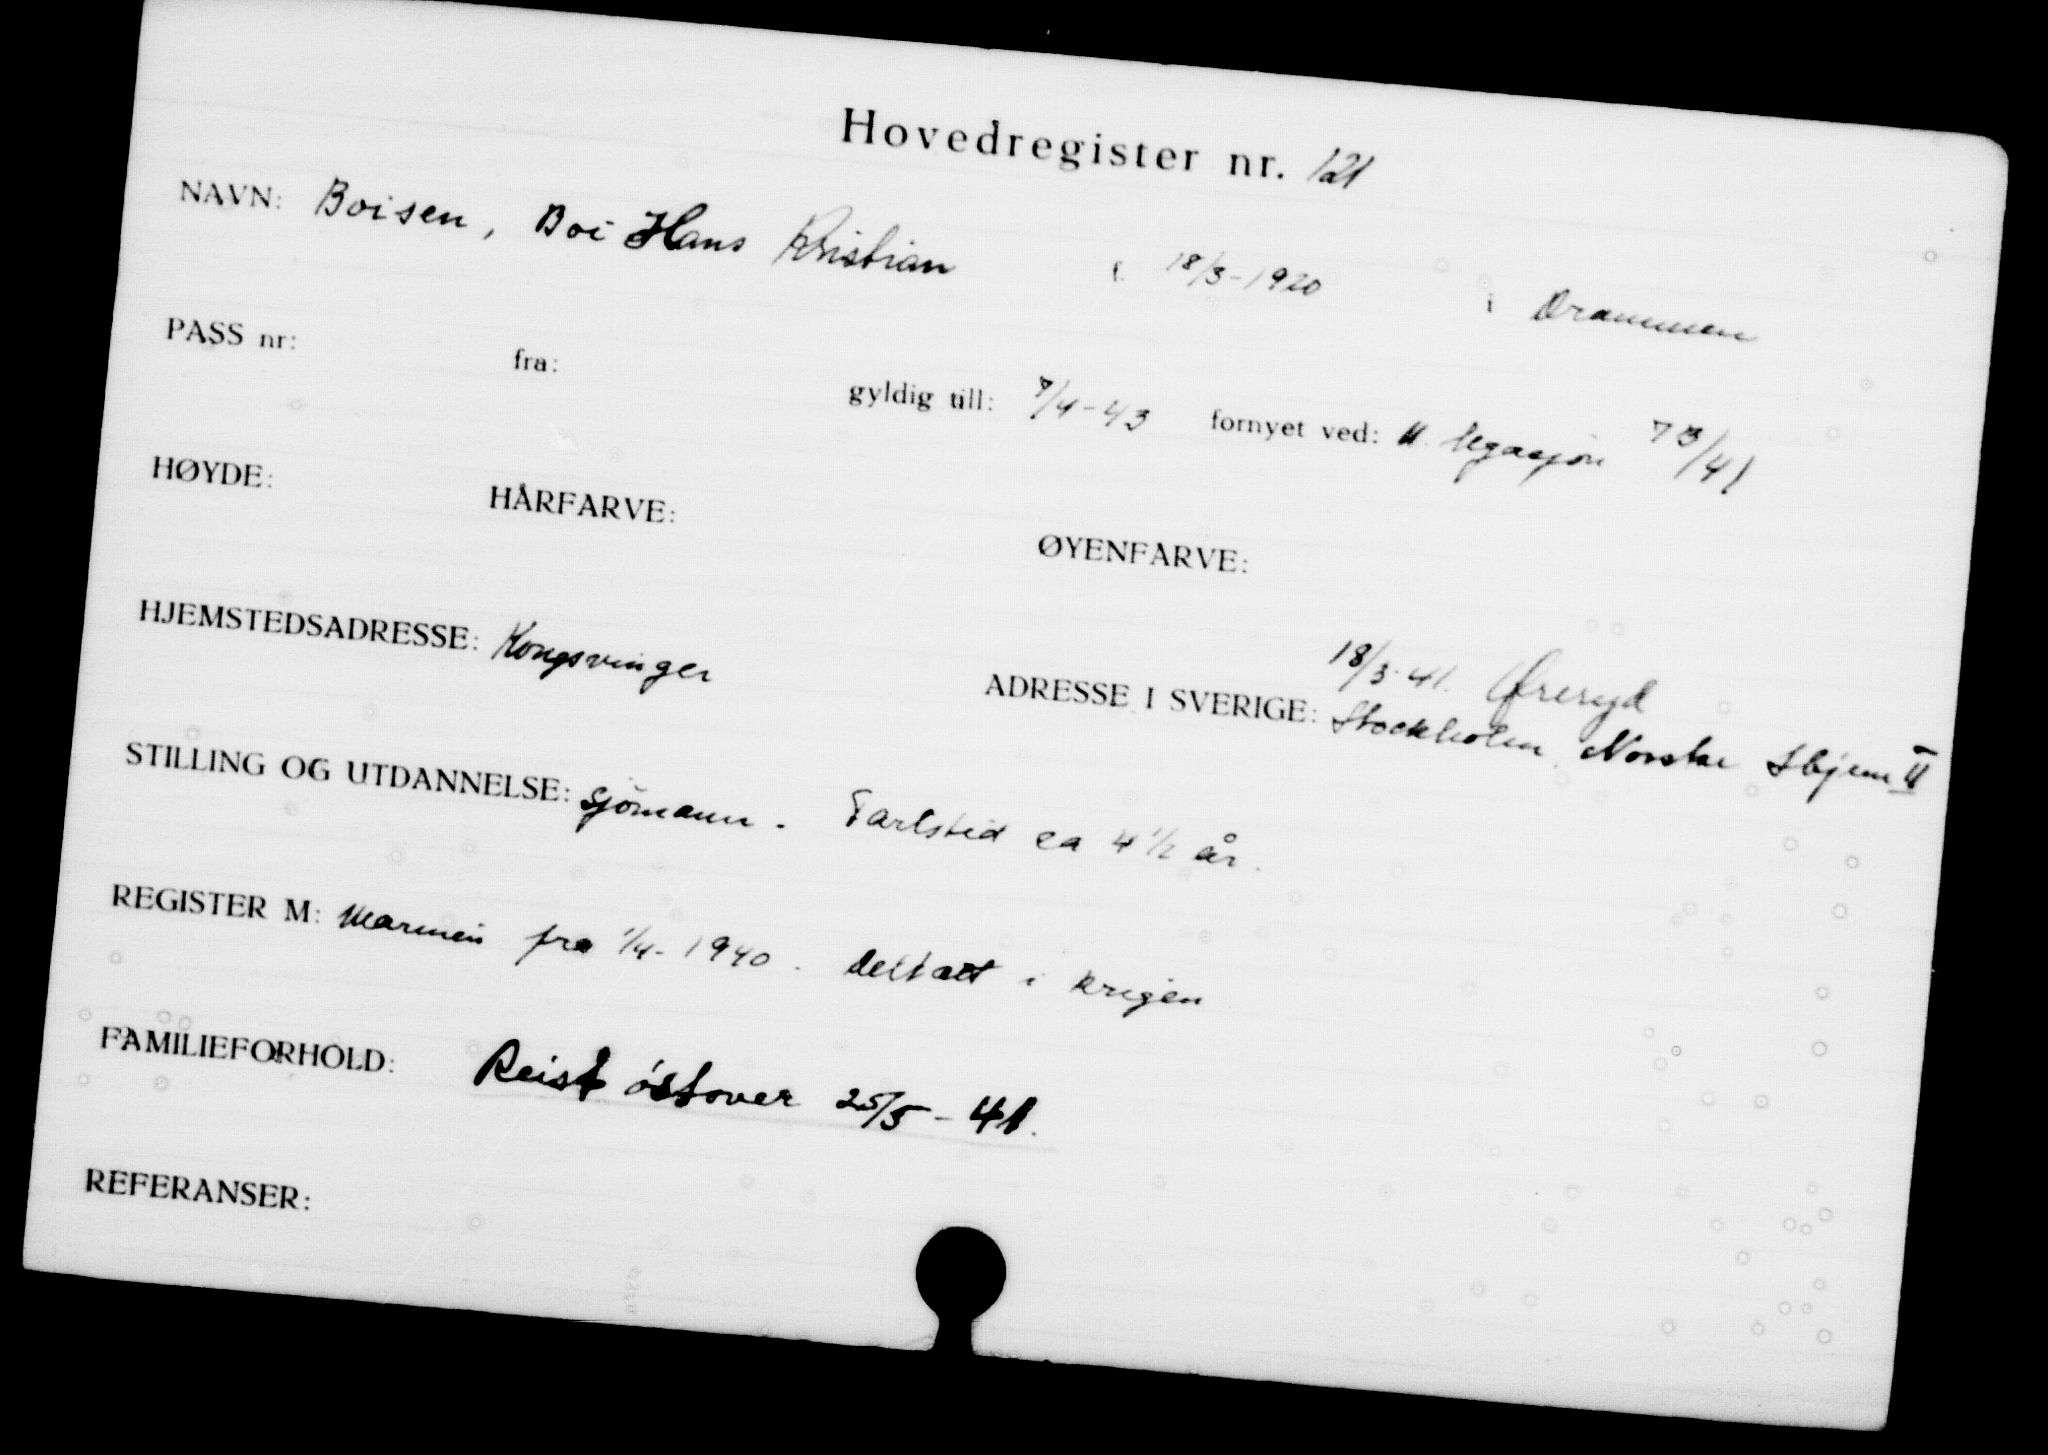 Hovedregister nr. 121
NAVN: Boisen, Boi Hans Kristian f. 18/3-1920 i Drammen
PASS nr: fra: gyldig till: 7/4-43 fornyet ved: N. legasjon 7 3/41
HØYDE: HÅRFARVE: ØYENFARVE:
18/3-41. Øreryd
HJEMSTEDSADRESSE: Kongsvinger ADRESSE I SVERIGE: Stockholm. Norske Shjem II
STILLING OG UTDANNELSE: sjömann. Fartstid ca 4 1/2 år.
REGISTER M: Marinen fra 1/4-1940. deltatt i krigen
FAMILIEFORHOLD: Reist östover 25/5-41.
REFERANSER: